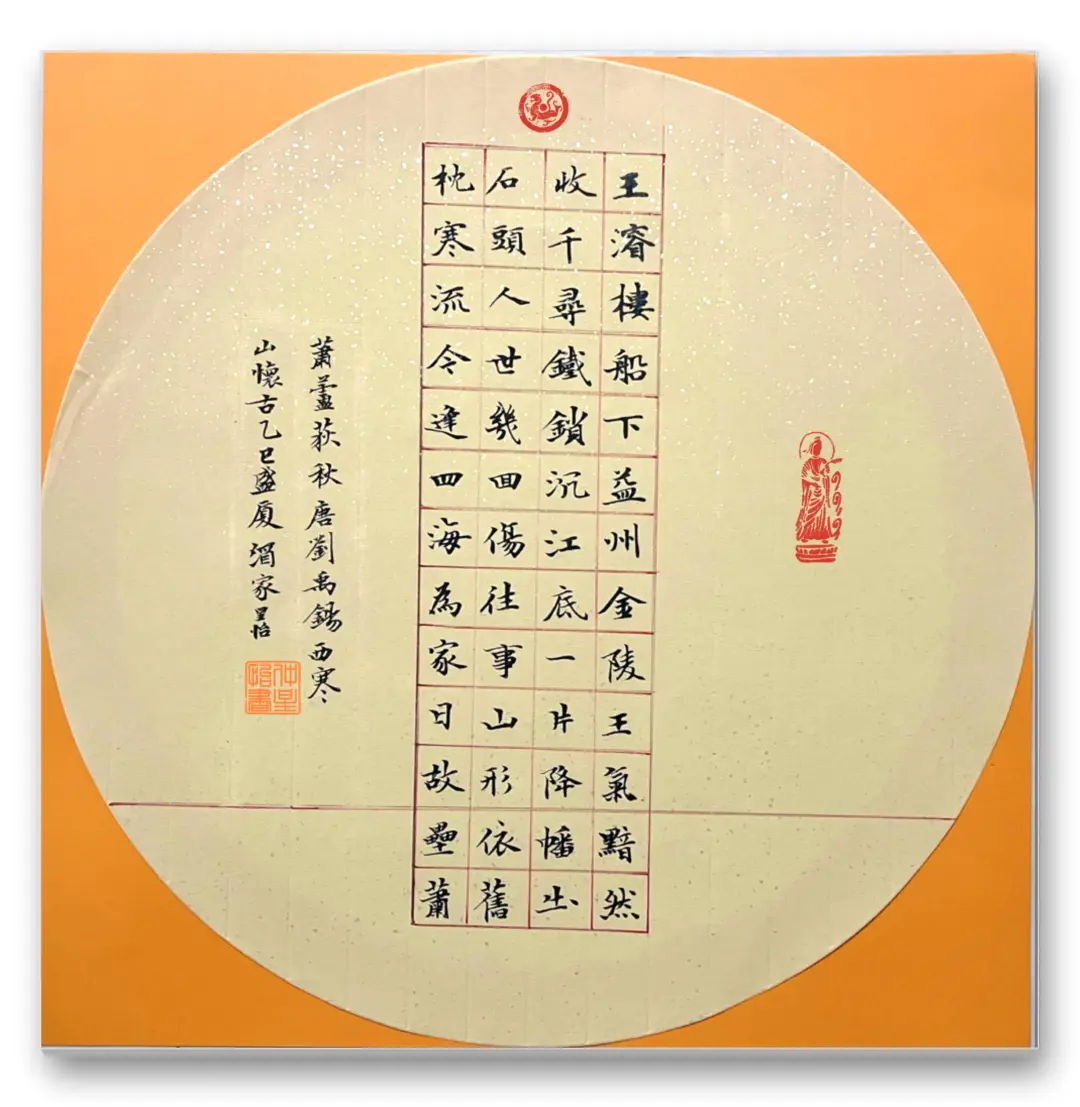 王濬樓船下益州金陵王氣黯然
收千尋鐵鎖沉江底一片降幡出
石頭人世幾回傷往事山形依舊
枕寒流今逢四海為家日故壘蕭
蕭蘆荻秋唐劉禹錫西寒
山懷古乙巳盛夏家星怡
仲星怡書